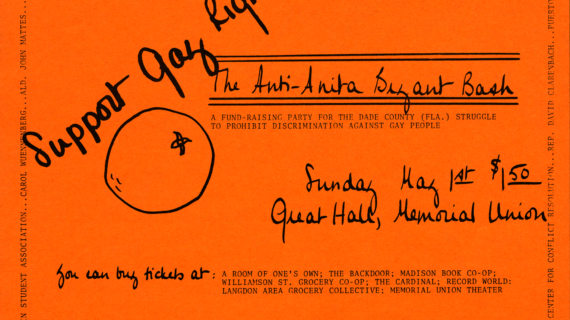 Support Gay Rig
The Anti-Anita Bryant Bash
A FUND-RAISING PARTY FOR THE DADE COUNTY (FLA.) STRUGGLE
TO PROHIBIT DISCRIMINATION AGAINST GAY PEOPLE
Sunday May 1st $1.50
Great Hall, Memorial Union
You can buy tickets at: A ROOM OF ONE'S OWN; THE BACKDOOR; MADISON BOOK CO-OP;
WILLIAMSON ST. GROCERY CO-OP; THE CARDINAL; RECORD WORLD:
LANGDON AREA GROCERY COLLECTIVE; MEMORIAL UNION THEATER
N STUDENT ASSOCIATION...CAROL WUENNENBERG...ALD. JOHN MATTES...
CENTER FOR CONFLICT RESOLUTION...REP. DAVID CLARENBACH...PUERTO